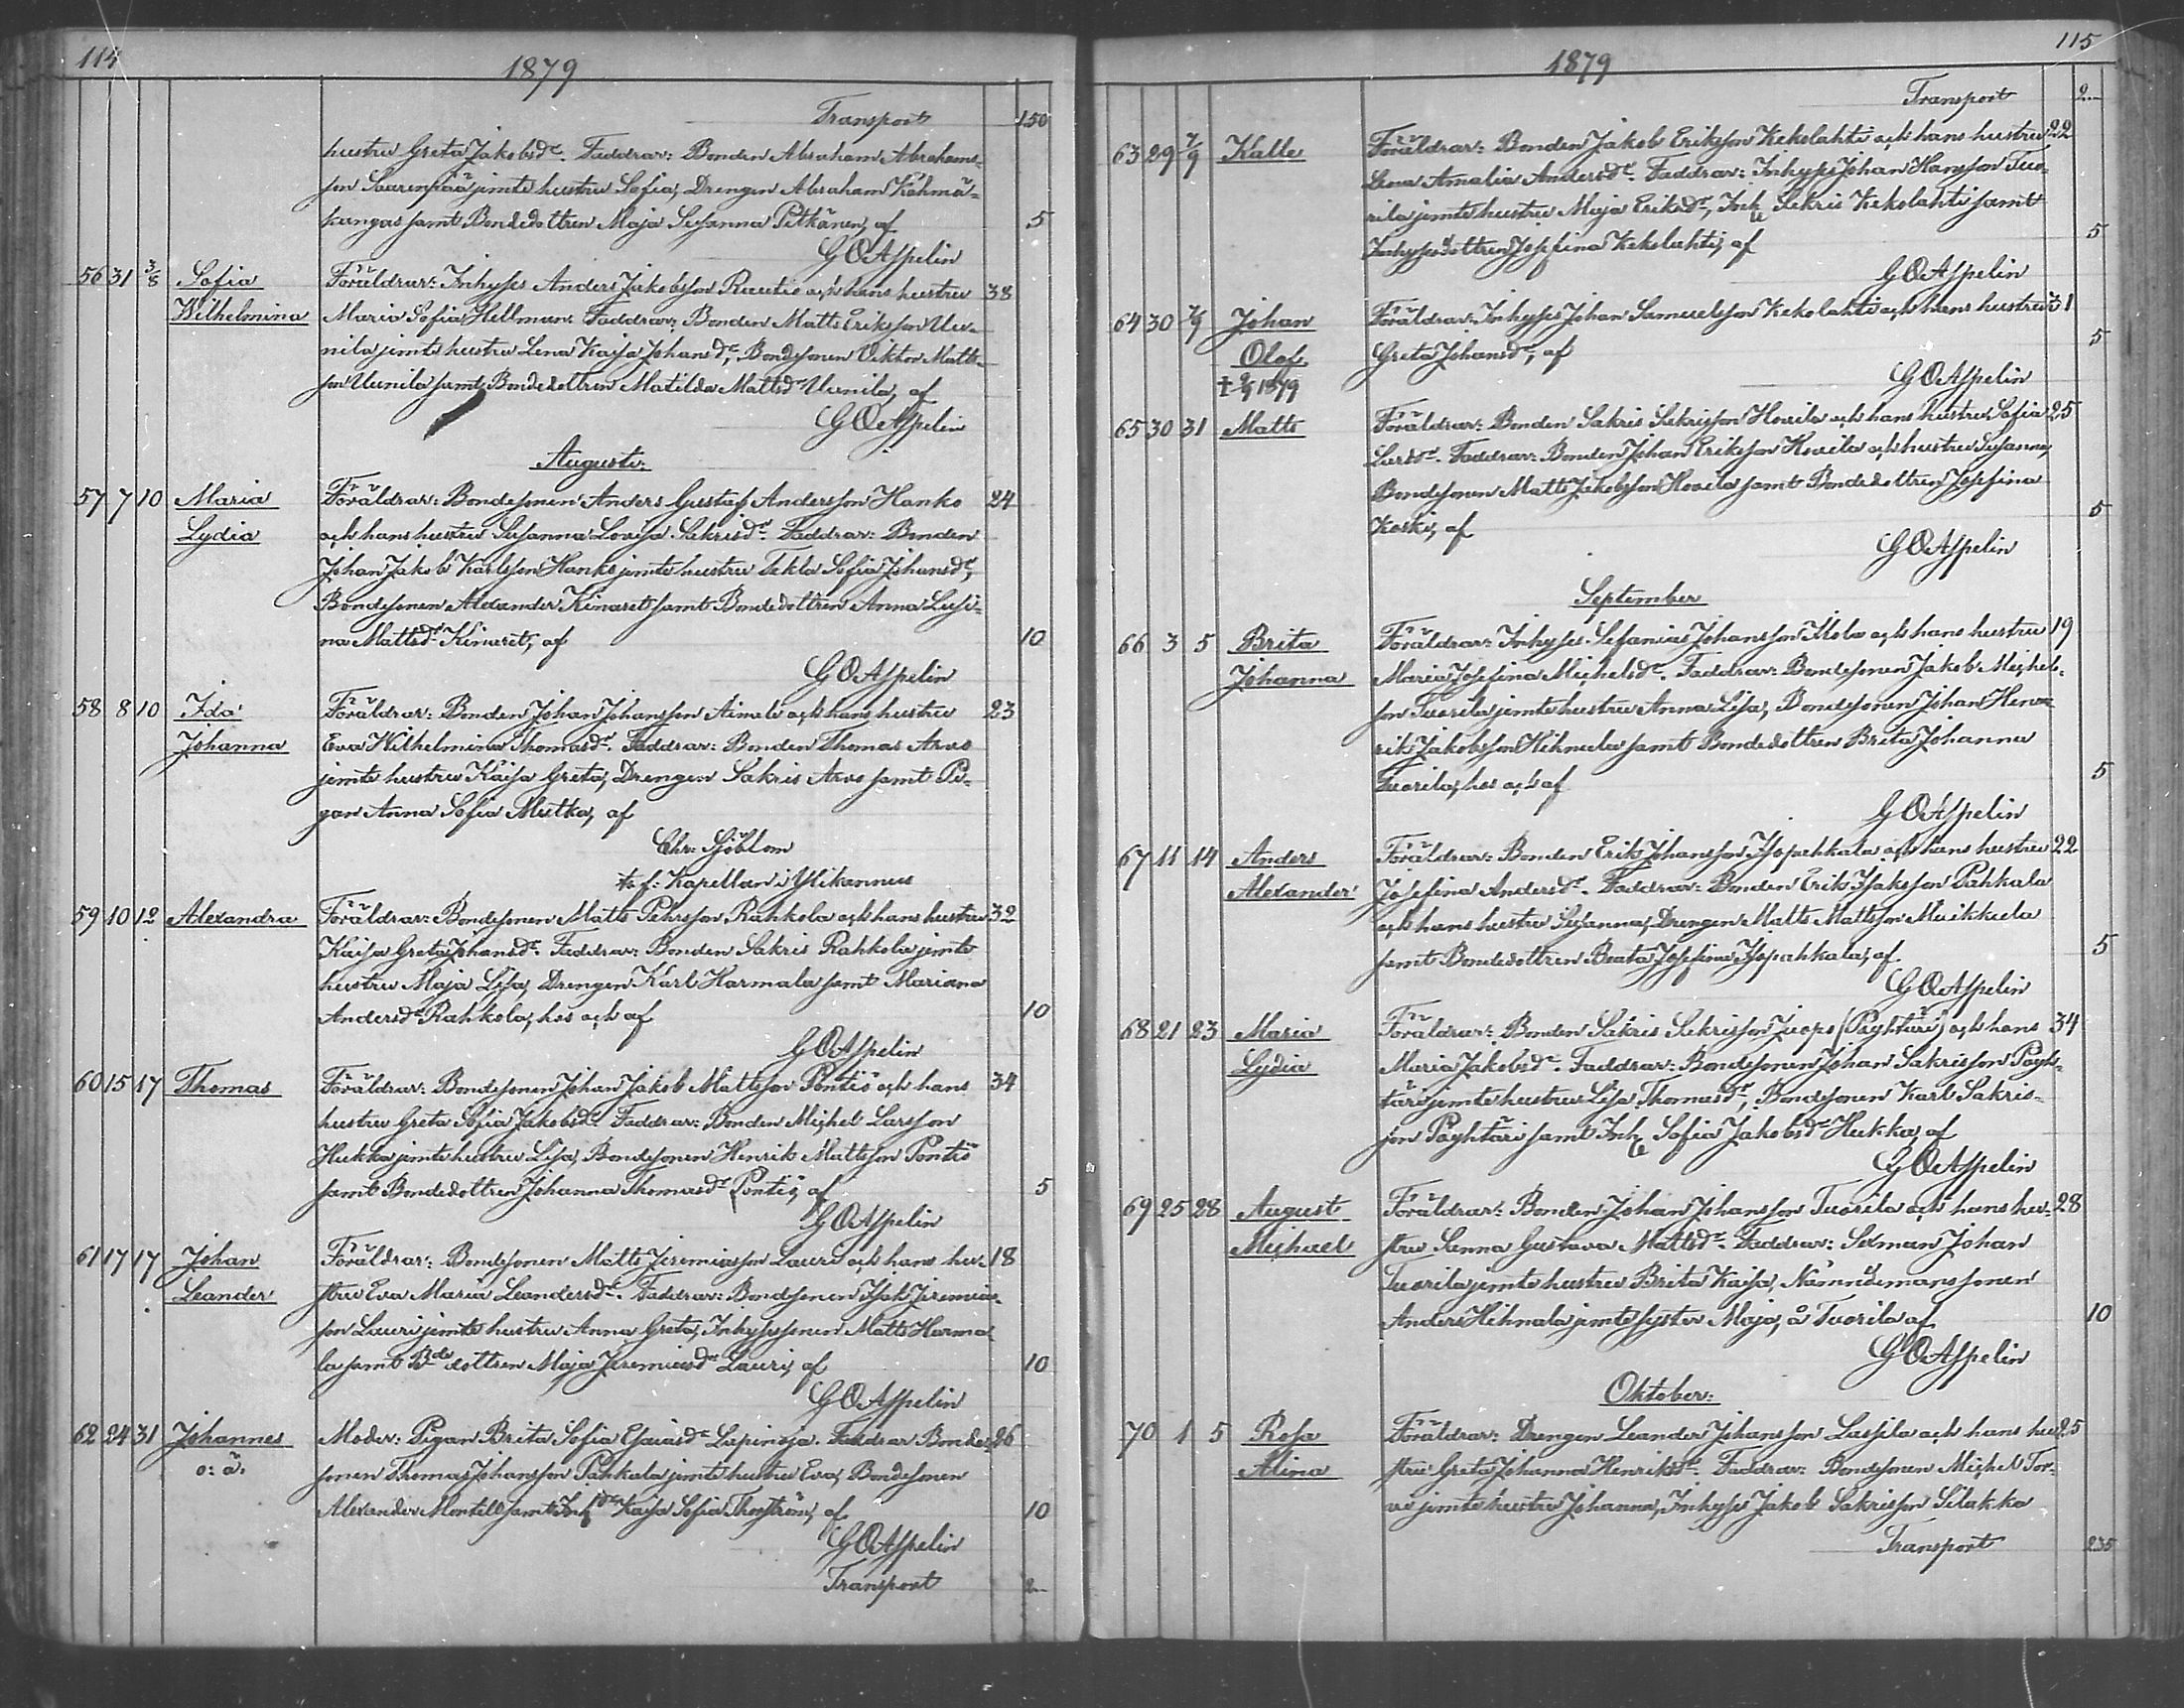 114
1879
Transport 150
hustru Greta Jakobsdr. Faddrar: Bonden Abraham Abrahams-
son Saarenpää jemte hustru Sofia, Drengen Abraham Kähmä-
kangas samt Bondedottren Maja Susanna Pitkänen, af 5
G O Aspelin
56 31 3/8 Sofia Föräldrar: Inhyses Anders Jakobsson Rautio och hans hustru 38
Wilhelmina Maria Sofia Hellman. Faddrar: Bonden Matts Eriksson Uu-
nila jemte hustru Lena Kajsa Johansdr, Bondesonen Viktor Matts-
son Uunila samt Bondedottren Matilda Mattsdr Uunila, af
G O Aspelin
Augusti:
57 7 10 Maria Föräldrar: Bondesonen Anders Gustaf Andersson Hanko 24
Lydia och hans hustru Susanna Lovisa Sakrisdr. Faddrar: Bonden
Johan Jakob Karlsson Hanko jemte hustru Tekla Sofia Johansdr,
Bondesonen Alexander Kinaret samt Bondedottren Anna Lusi-
na Mattsdr Kinaret, af 10
G O Aspelin
58 8 10 Ida Föräldrar: Bonden Johan Johansson Aimala och hans hustru 23
Johanna Eva Wilhelmina Thomasdr. Faddrar: Bonden Thomas Arvo
jemte hustru Kajsa Greta, Drengen Sakris Arvo samt Pi-
gan Anna Sofia Mutka, af
Chr. Sjöblom
t. f. Kapellan i Ylikannus
59 10 12 Alexandra Föräldrar: Bondesonen Matts Pehrsson Rahkola och hans hustru 32
Kajsa Greta Johansdr. Faddrar: Bonden Sakris Rahkola jemte
hustru Maja Lisa, Drengen Karl Harmala samt Mariana
Andersdr Rahkola, hos och af 10
G O Aspelin
60 15 17 Thomas Föräldrar: Bondesonen Johan Jakob Mattsson Pontiö och hans 34
hustru Greta Sofia Jakobsdr. Faddrar: Bonden Michel Larsson
Hukka jemte hustru Lisa, Bondesonen Henrik Mattsson Pontiö
samt Bondedottren Johanna Thomasdr Pontiö, af 5
G O Aspelin
61 17 17 Johan Föräldrar: Bondesonen Matts Jeremiasson Lauri och hans hu- 18
Leander stru Eva Maria Leandersdr. Faddrar: Bondesonen Isak Jeremias-
son Lauri jemte hustru Anna Greta, Inhysessonen Matts Harma-
la samt Bde dottren Maja Jeremiasdr Lauri, af 10
G O Aspelin
62 24 31 Johannes Moder: Pigan Brita Sofia Esaiasdr Lapinoja. Faddrar Bonde- 26
o: ä. sonen Thomas Johansson Pahkala jemte hustru Eva, Bondesonen
Alexander Montell samt Inh Kajsa Sofia Thorström, af 10
G O Aspelin
Transport 2—
115
1879
Transport 2—
63 29 7/9 Kalle Föräldrar: Bonden Jakob Eriksson Kekolahti och hans hustru 22
Lena Amalia Andersdr. Faddrar: Inhyses Johan Hansson Tuo-
rila jemte hustru Maja Eriksdr, Inh Sakris Kekolahti samt
Inhysesdottren Josefina Kekolahti, af 5
G O Aspelin
64 30 7/9 Johan Föräldrar: Inhyses Johan Samuelsson Kekolahti och hans hustru 31
Olof Greta Johansdr, af 5
† 9/9 1879 G O Aspelin
65 30 31 Matts Föräldrar: Bonden Sakris Sakrisson Houila och hans hustru Sofia 25
Larsdr. Faddrar: Bonden Johan Eriksson Houila och hustru Susanna,
Bondesonen Matts Jakobsson Houila samt Bondedottren Josefina
Koski, af 5
G O Aspelin
September
66 3 5 Brita Föräldrar: Inhyses Sefanias Johansson Mola och hans hustru 19
Johanna Maria Josefina Michelsdr. Faddrar: Bondesonen Jakob Michels-
son Tuorila jemte hustru Anna Lisa, Bondesonen Johan Hen-
rik Jakobsson Hihnala samt Bondedottren Brita Johanna
Tuorila, hos och af 5
G O Aspelin
67 11 14 Anders Föräldrar: Bonden Erik Johansson Isopahkala och hans hustru 22
Alexander Josefina Andersdr. Faddrar: Bonden Erik Isaksson Pahkala
och hans hustru Susanna, Drengen Matts Mattsson Muikkula
samt Bondedottren Beata Josefina Isopahkala, af 5
G O Aspelin
68 21 23 Maria Föräldrar: Bonden Sakris Sakrisson Juopo (Päyhtäri) och hans 34
Lydia Maria Jakobsdr. Faddrar: Bondesonen Johan Sakrisson Päyh-
täri jemte hustru Lisa Thomasdr, Bondesonen Karl Sakris-
son Päyhtäri samt Inh Sofia Jakobsdr Hukka, af
G O Aspelin
69 25 28 August Föräldrar: Bonden Johan Johansson Tuorila och hans hu- 28
Michael stru Sanna Gustava Mattsdr. Faddrar: Sexman Johan
Tuorila jemte hustru Brita Kajsa, Nämndemanssonen
Anders Hihnala jemte syster Maja, å Tuorila af 10
G O Aspelin
Oktober:
70 1 5 Rosa Föräldrar: Drengen Leander Johansson Lassila och hans hu- 25
Alina stru Greta Johanna Henriksdr. Faddrar: Bondesonen Michel Tor-
vi jemte hustru Johanna, Inhyses Jakob Sakrisson Silakka
Transport 235